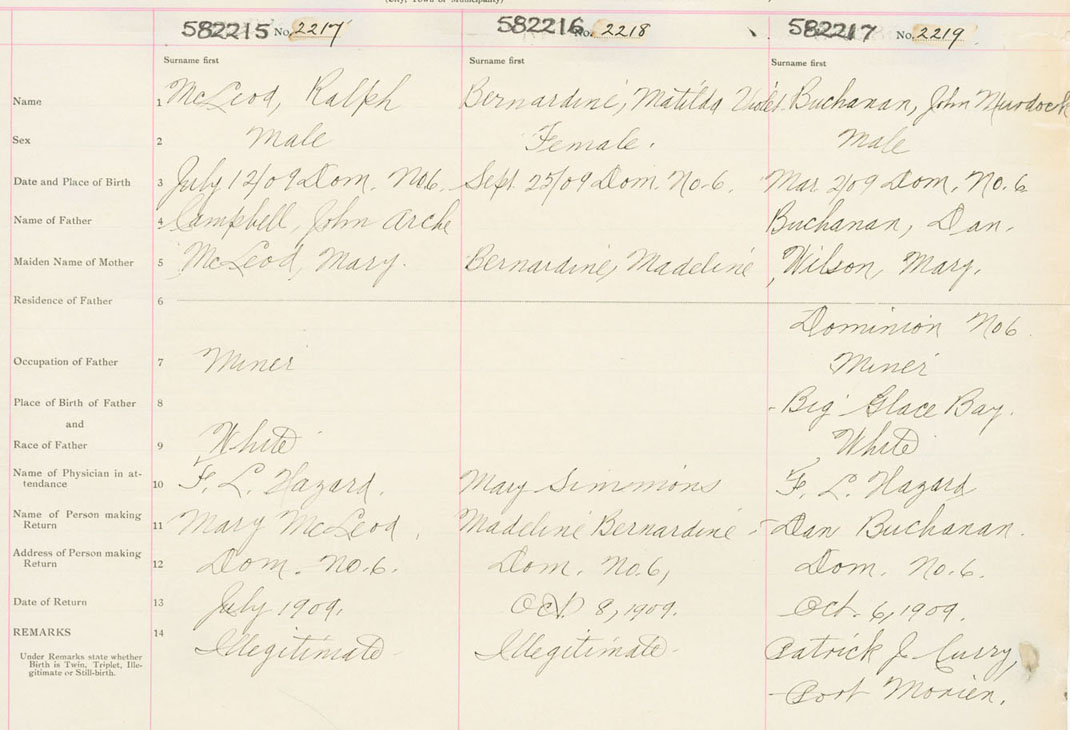 (City, Town or Municipality)
582215 No. 2217 582216 No. 2218 582217 No. 2219
Surname first Surname first Surname first
Name 1 McLeod, Ralph Bernardine, Matilda Violet Buchanan, John Murdock
Sex 2 Male Female. Male
Date and Place of Birth 3 July 12/09 Dom. No.6. Sept. 25/09 Dom. No.6. Mar 2/09 Dom. No.6
Name of Father 4 Campbell, John Arche Buchanan, Dan.
Maiden Name of Mother 5 McLeod, Mary. Bernardine, Madeline Wilson, Mary.
Residence of Father 6
Dominion No6.
Occupation of Father 7 Miner Miner
Place of Birth of Father 8 Big Glace Bay.
and
Race of Father 9 White White
Name of Physician in at-
tendance 10 F. L. Hazard. Mary Simmions F. L. Hazard
Name of Person making
Return 11 Mary McLeod. Madeline Bernardine - Dan Buchanan.
Address of Person making
Return 12 Dom. No.6. Dom. No.6, Dom. No.6.
Date of Return 13 July 1909. Oct. 8, 1909. Oct. 6, 1909.
REMARKS 14 Illegitimate Illegitimate Patrick J. Curry,
Under Remarks state whether
Birth is Twin, Triplet, Ille-
gitimate or Still-birth.
Port Morien.